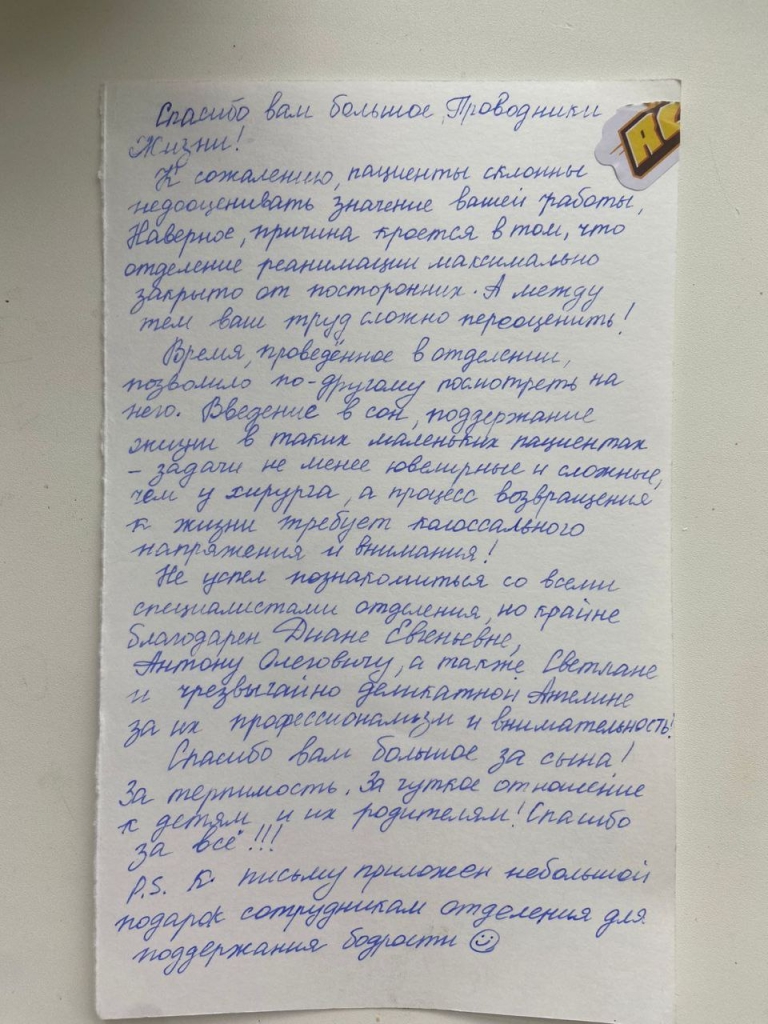 Спасибо вам большое, Проводники
Жизни!
К сожалению, пациенты склонны
недооценивать значение вашей работы,
Наверное, причина кроется в том, что
отделение реанимации максимально
закрыто от посторонних. А между
тем ваш труд сложно переоценить!
Время, проведённое в отделении,
позволило по-другому посмотреть на
него. Введение в сон, поддержание
жизни в таких маленьких пациентах
- задачи не менее ювелирные и сложные,
чем у хирурга, а процесс возвращения
к жизни требует колоссального
напряжения и внимания!
Не успел познакомиться со всеми
специалистами отделения, но крайне
благодарен Диане Евгеньевне,
Антону Олеговичу, а также Светлане
и чрезвычайно деликатной Ангелине
за их профессионализм и внимательность!
Спасибо вам большое за сына!
За терпимость. За чуткое отношение
к детям и их родителям! Спасибо
за всё!!!
P.S. К письму приложен небольшой
подарок сотрудникам отделения для
поддержания бодрости ☺